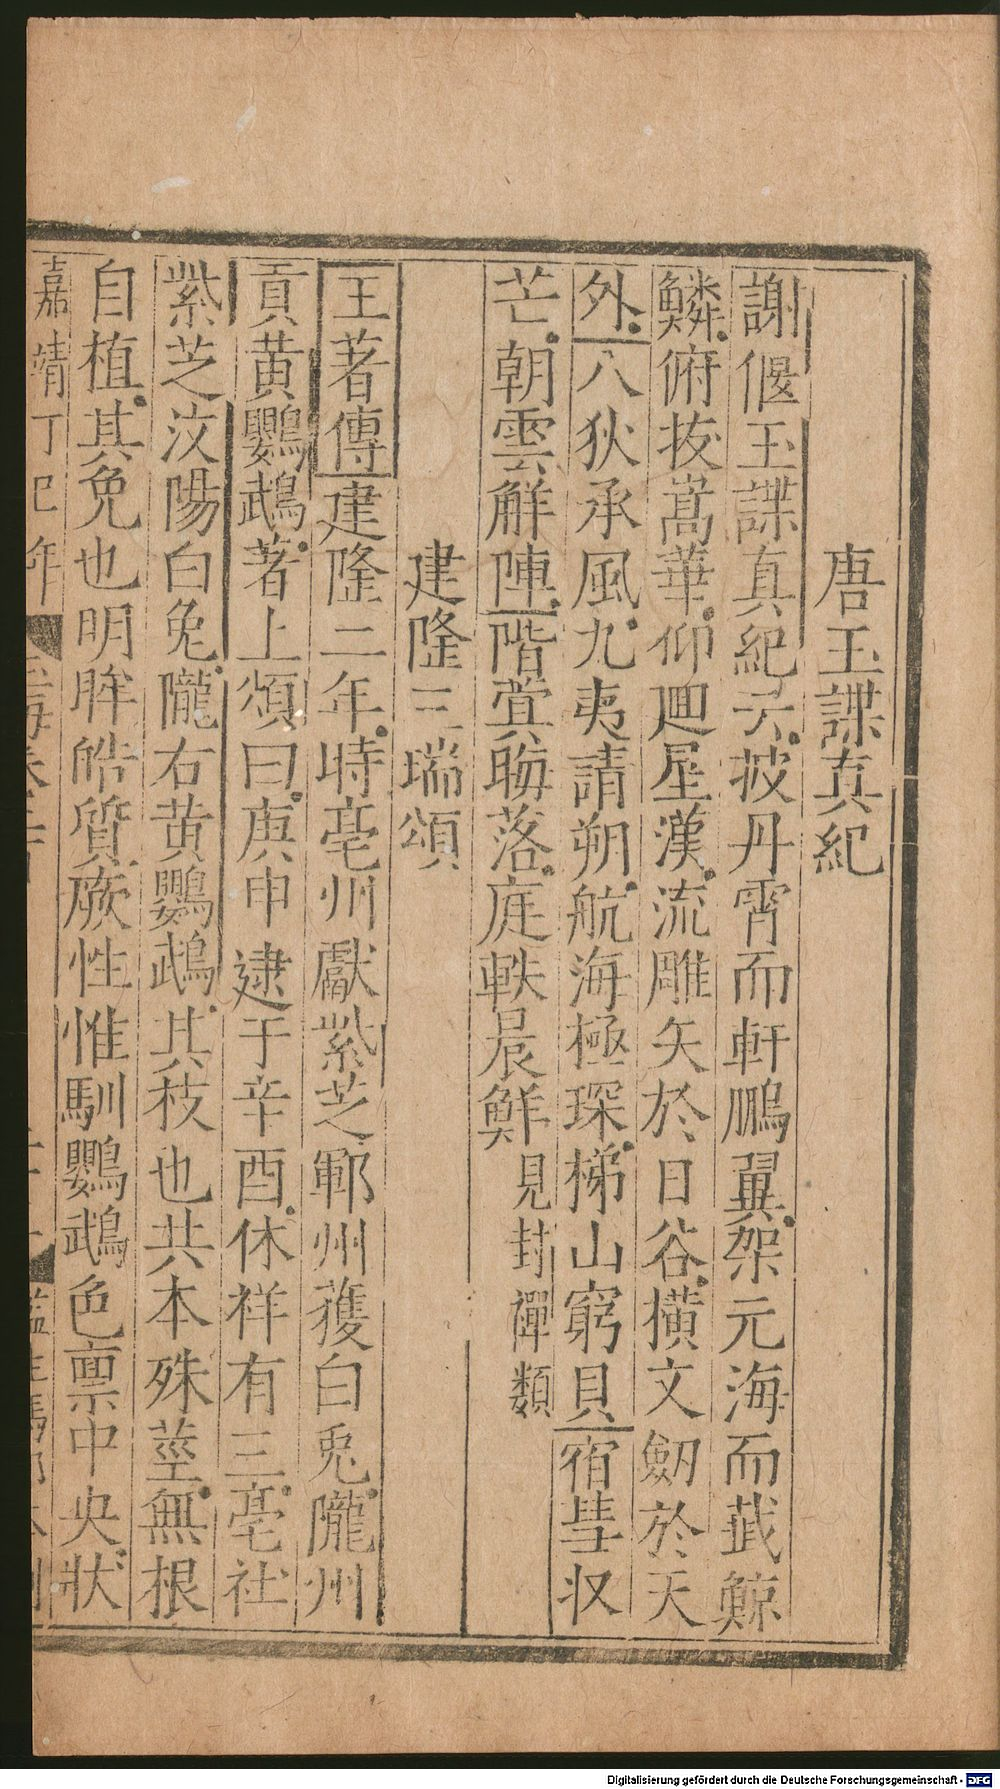 唐玉諜真紀
謝偃玉諜真紀云披丹霄而軒鵬翼架元海而截鯨
鱗俯拔嵩華仰廻星漢流雕矢於日谷橫文劒於天
外八狄承風九夷請朔航海極琛梯山窮貝宿彗収
芒朝雲解陣階蓂晦落庭軼晨鮮見封禪類
建隆三瑞頌
王著傳建隆二年時亳州獻紫芝鄆州獲白兎隴州
貢黄鸚鵡著上頌曰庚申建于辛酉休祥有三亳社
紫芝汶陽白兔隴右黄鸚鵡其枝也共本殊莖無根
自植其兔也明眸皓質厥性惟馴鸚鵡色禀中央狀
嘉靖丁巳年
Digitalisierung gefördert durch die Deutsche Forschungsgemeinschaft - DFG